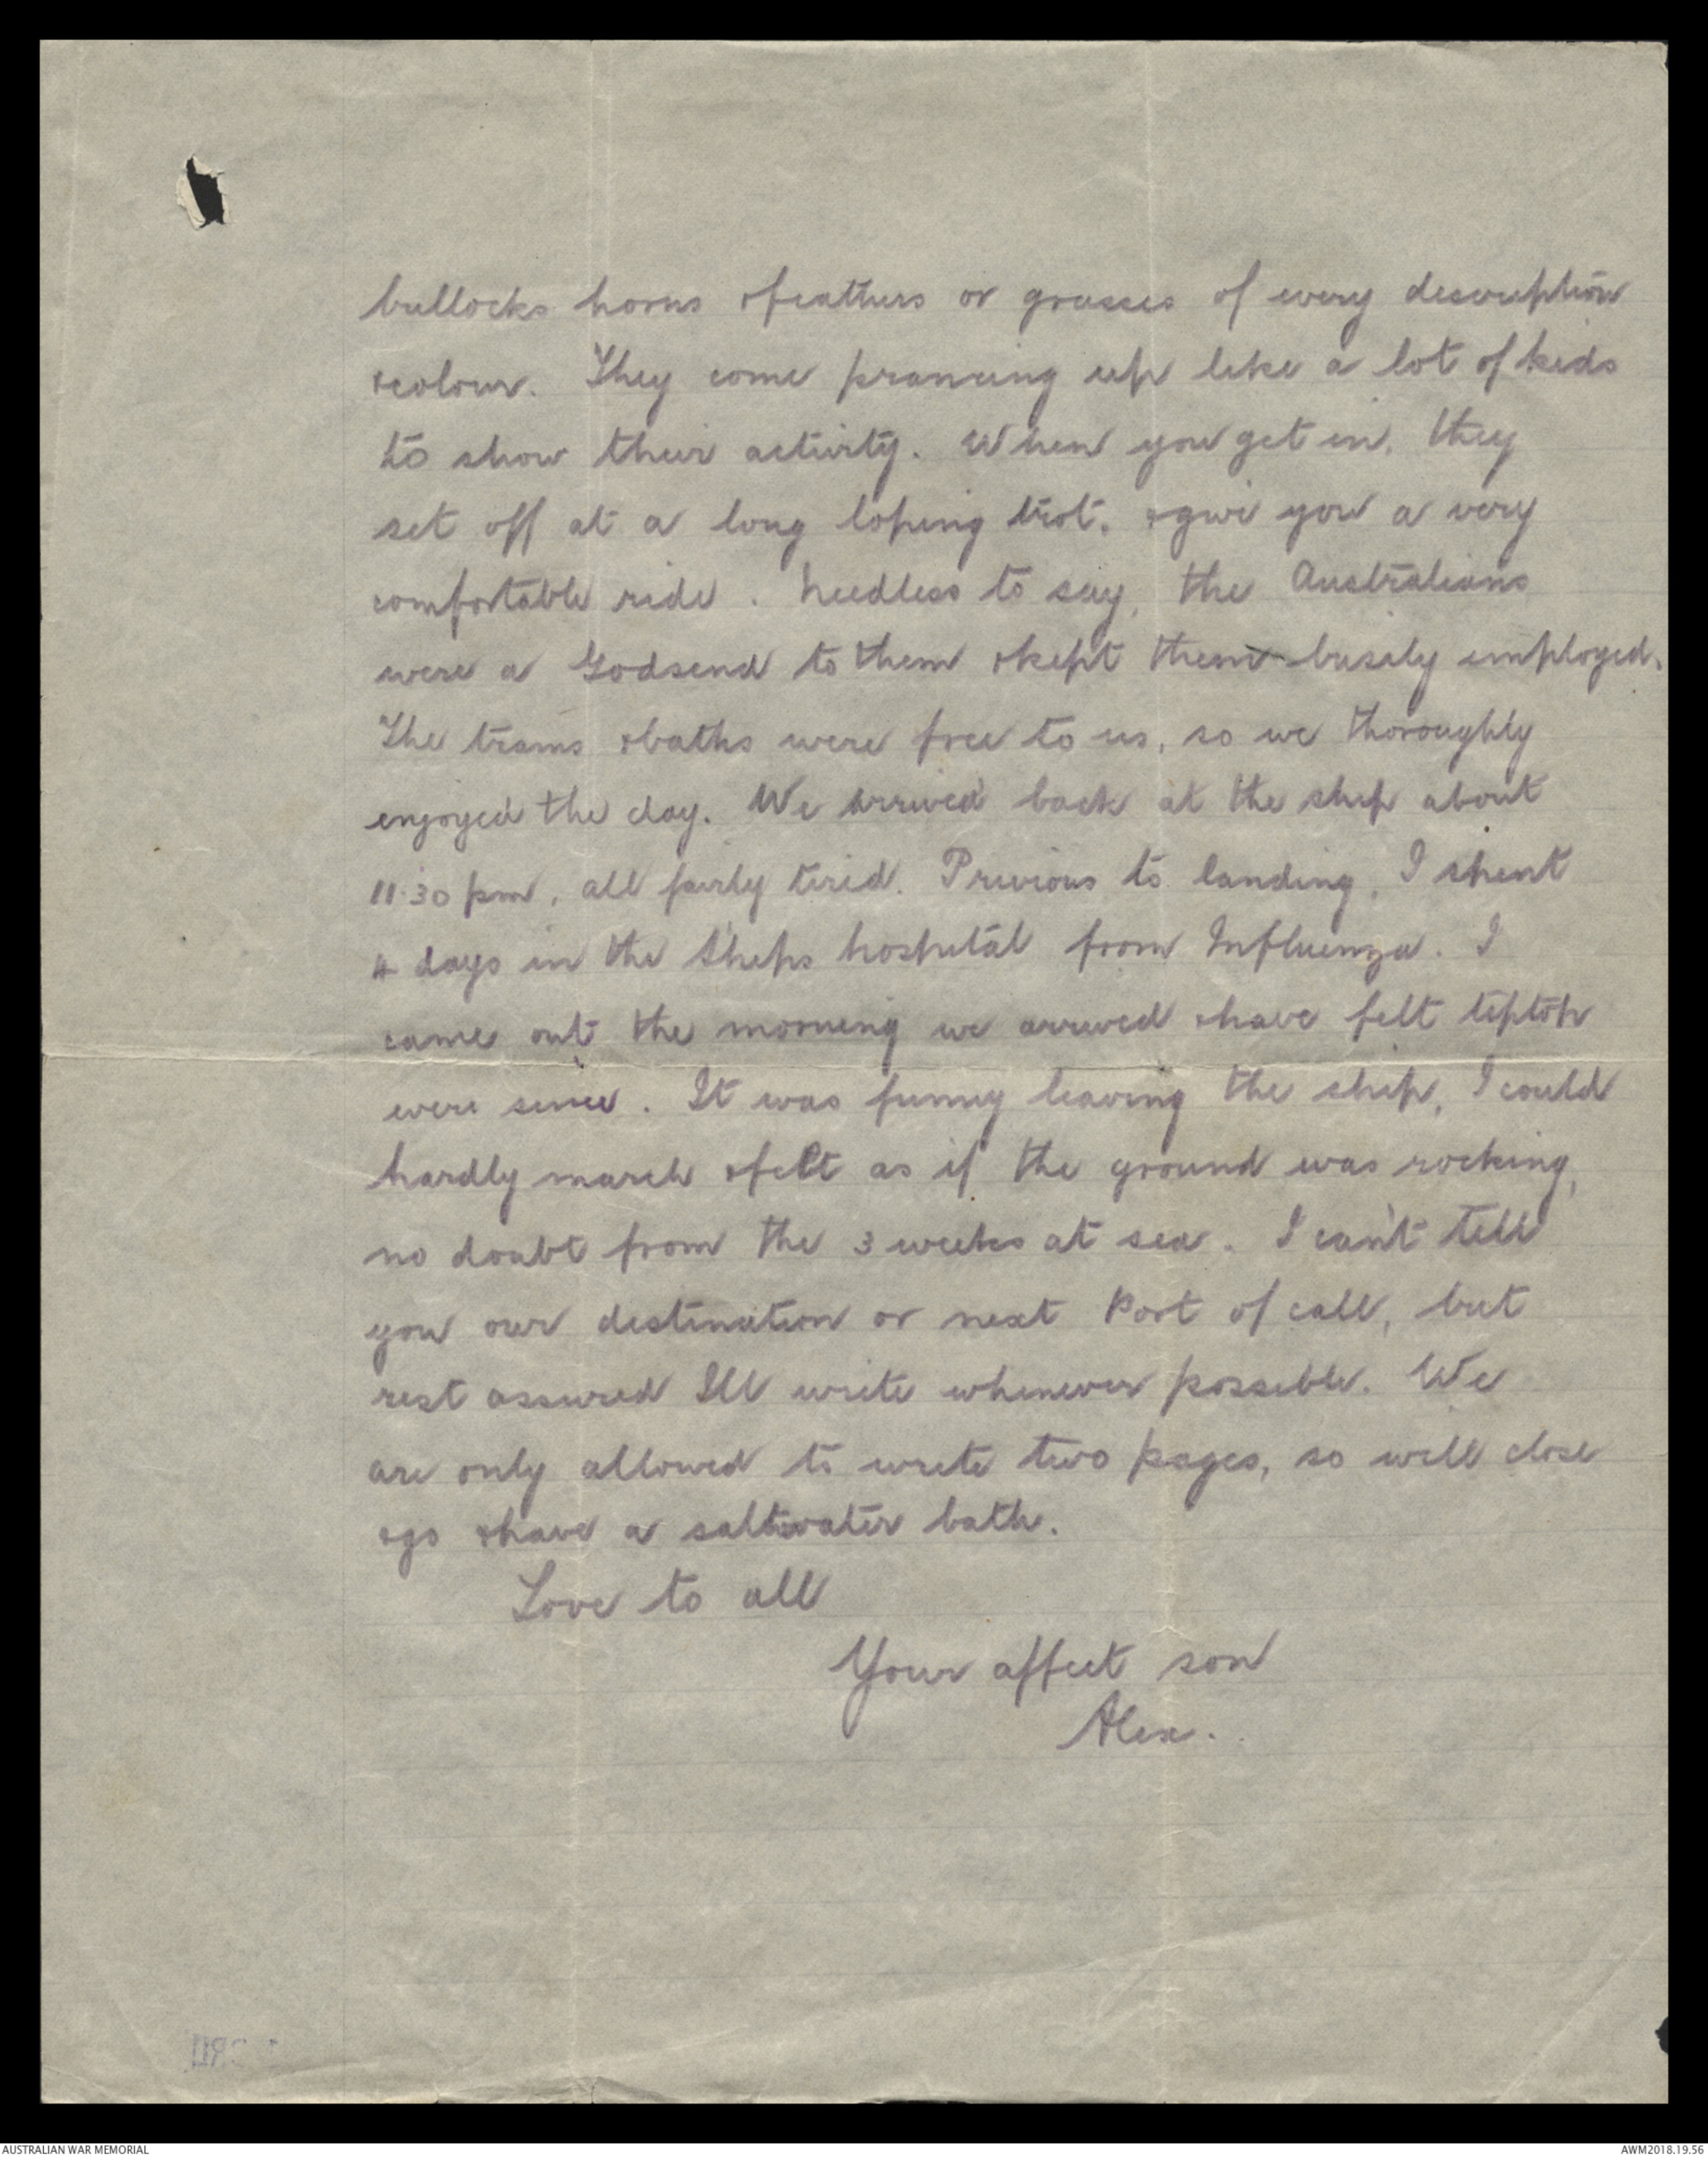 bullocks horns & feathers or grasses of every description
& colour. They come prancing up like a lot of kids
to show their activity. When you get in, they
set off at a long loping trot, & give you a very
comfortable ride. Needless to say, the Australians
were a Godsend to them & kept them busily employed.
The trams & baths were free to us, so we thoroughly
enjoyed the day. We arrived back at the ship about
11.30 pm, all fairly tired. Previous to landing, I spent
4 days in the ships hospital from Influenza. I
came out the morning we arrived & have felt tiptop
ever since. It was funny leaving the ship, I could
hardly march & felt as if the ground was rocking,
no doubt from the 3 weeks at sea. I can't tell
you our destination or next Port of call, but
rest assured Ill write whenever possible. We
are only allowed to write two pages, so will close
& go & have a saltwater bath.
Love to all
Your affect son
Alex.
AUSTRALIAN WAR MEMORIAL
AWM2018.19.56